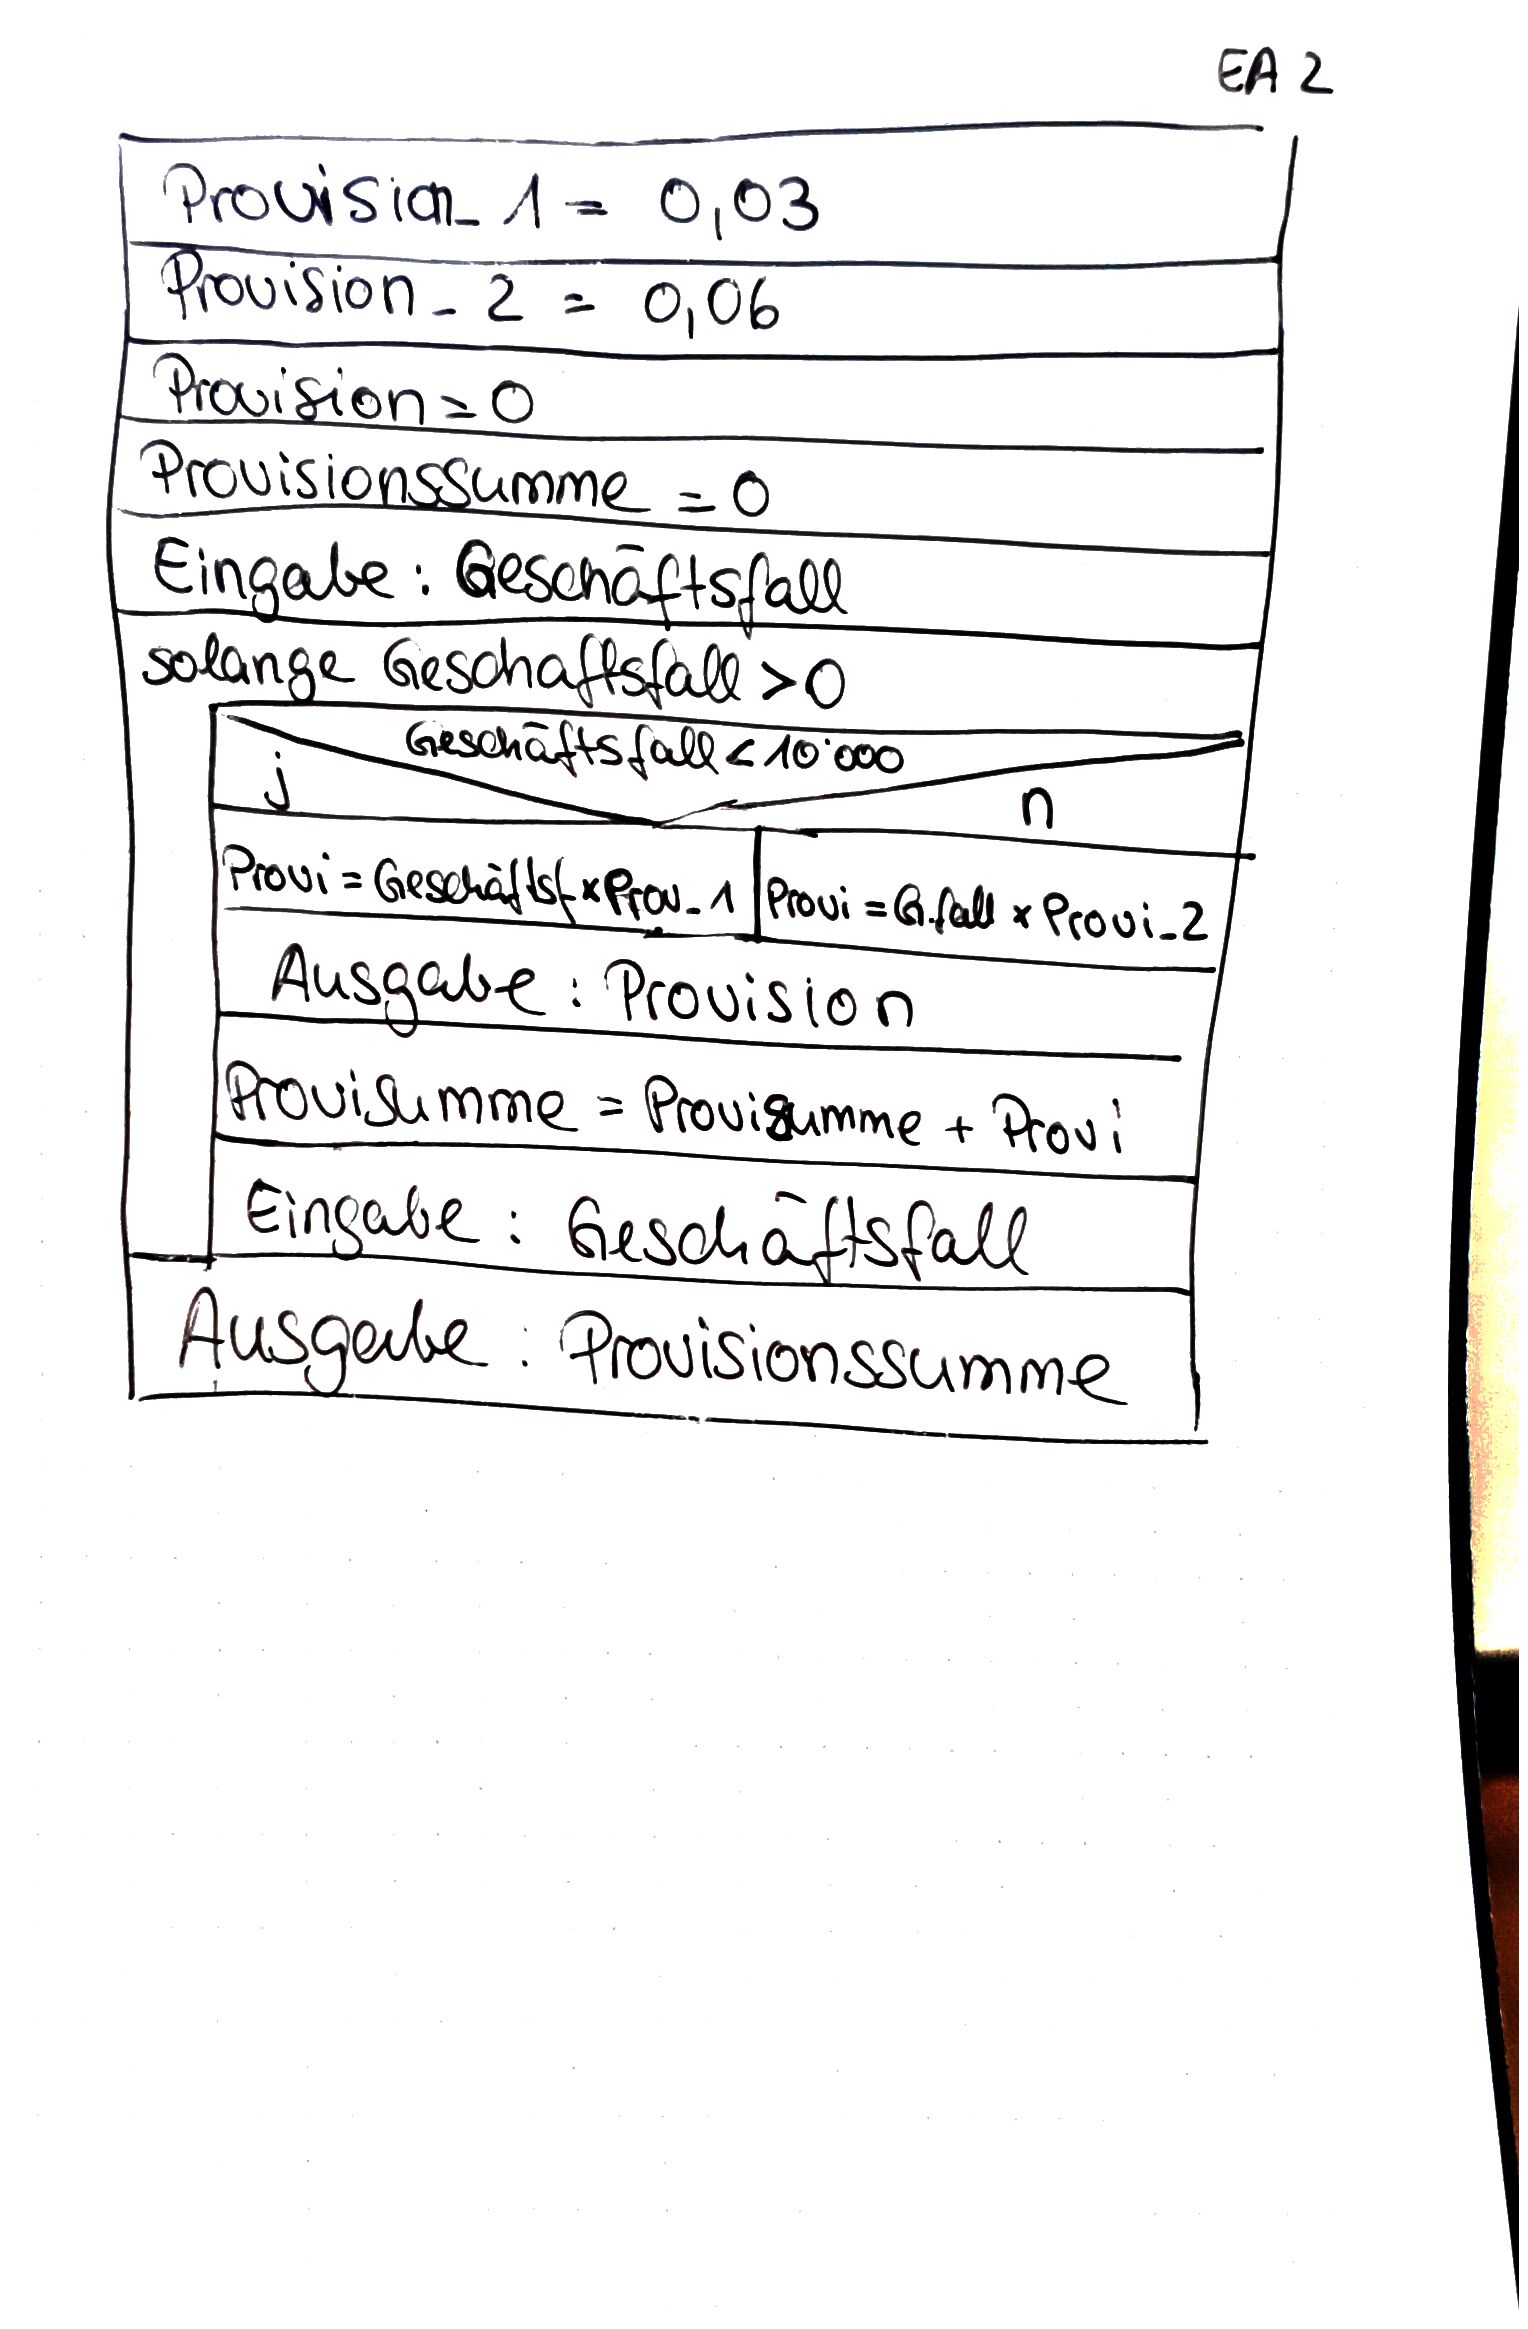 EA 2
Provision_1 = 0,03
Provision_2 = 0,06
Provision = 0
Provisionssumme = 0
Eingabe : Geschäftsfall
solange Geschaftsfall > 0
Geschäftsfall < 10'000
j n
Provi = Geschäftsf x Prov_1 Provi = G.fall x Provi_2
Ausgabe : Provision
Provisumme = Provisumme + Provi
Eingabe : Geschäftsfall
Ausgabe : Provisionssumme